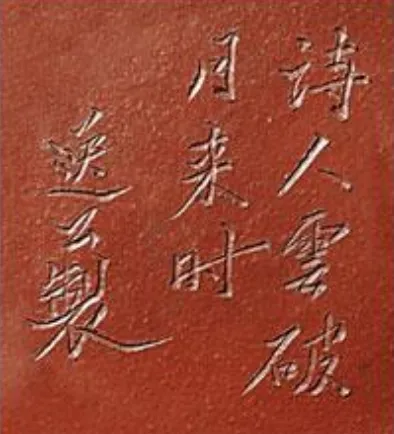 诗人雲破
月来时
逸公製